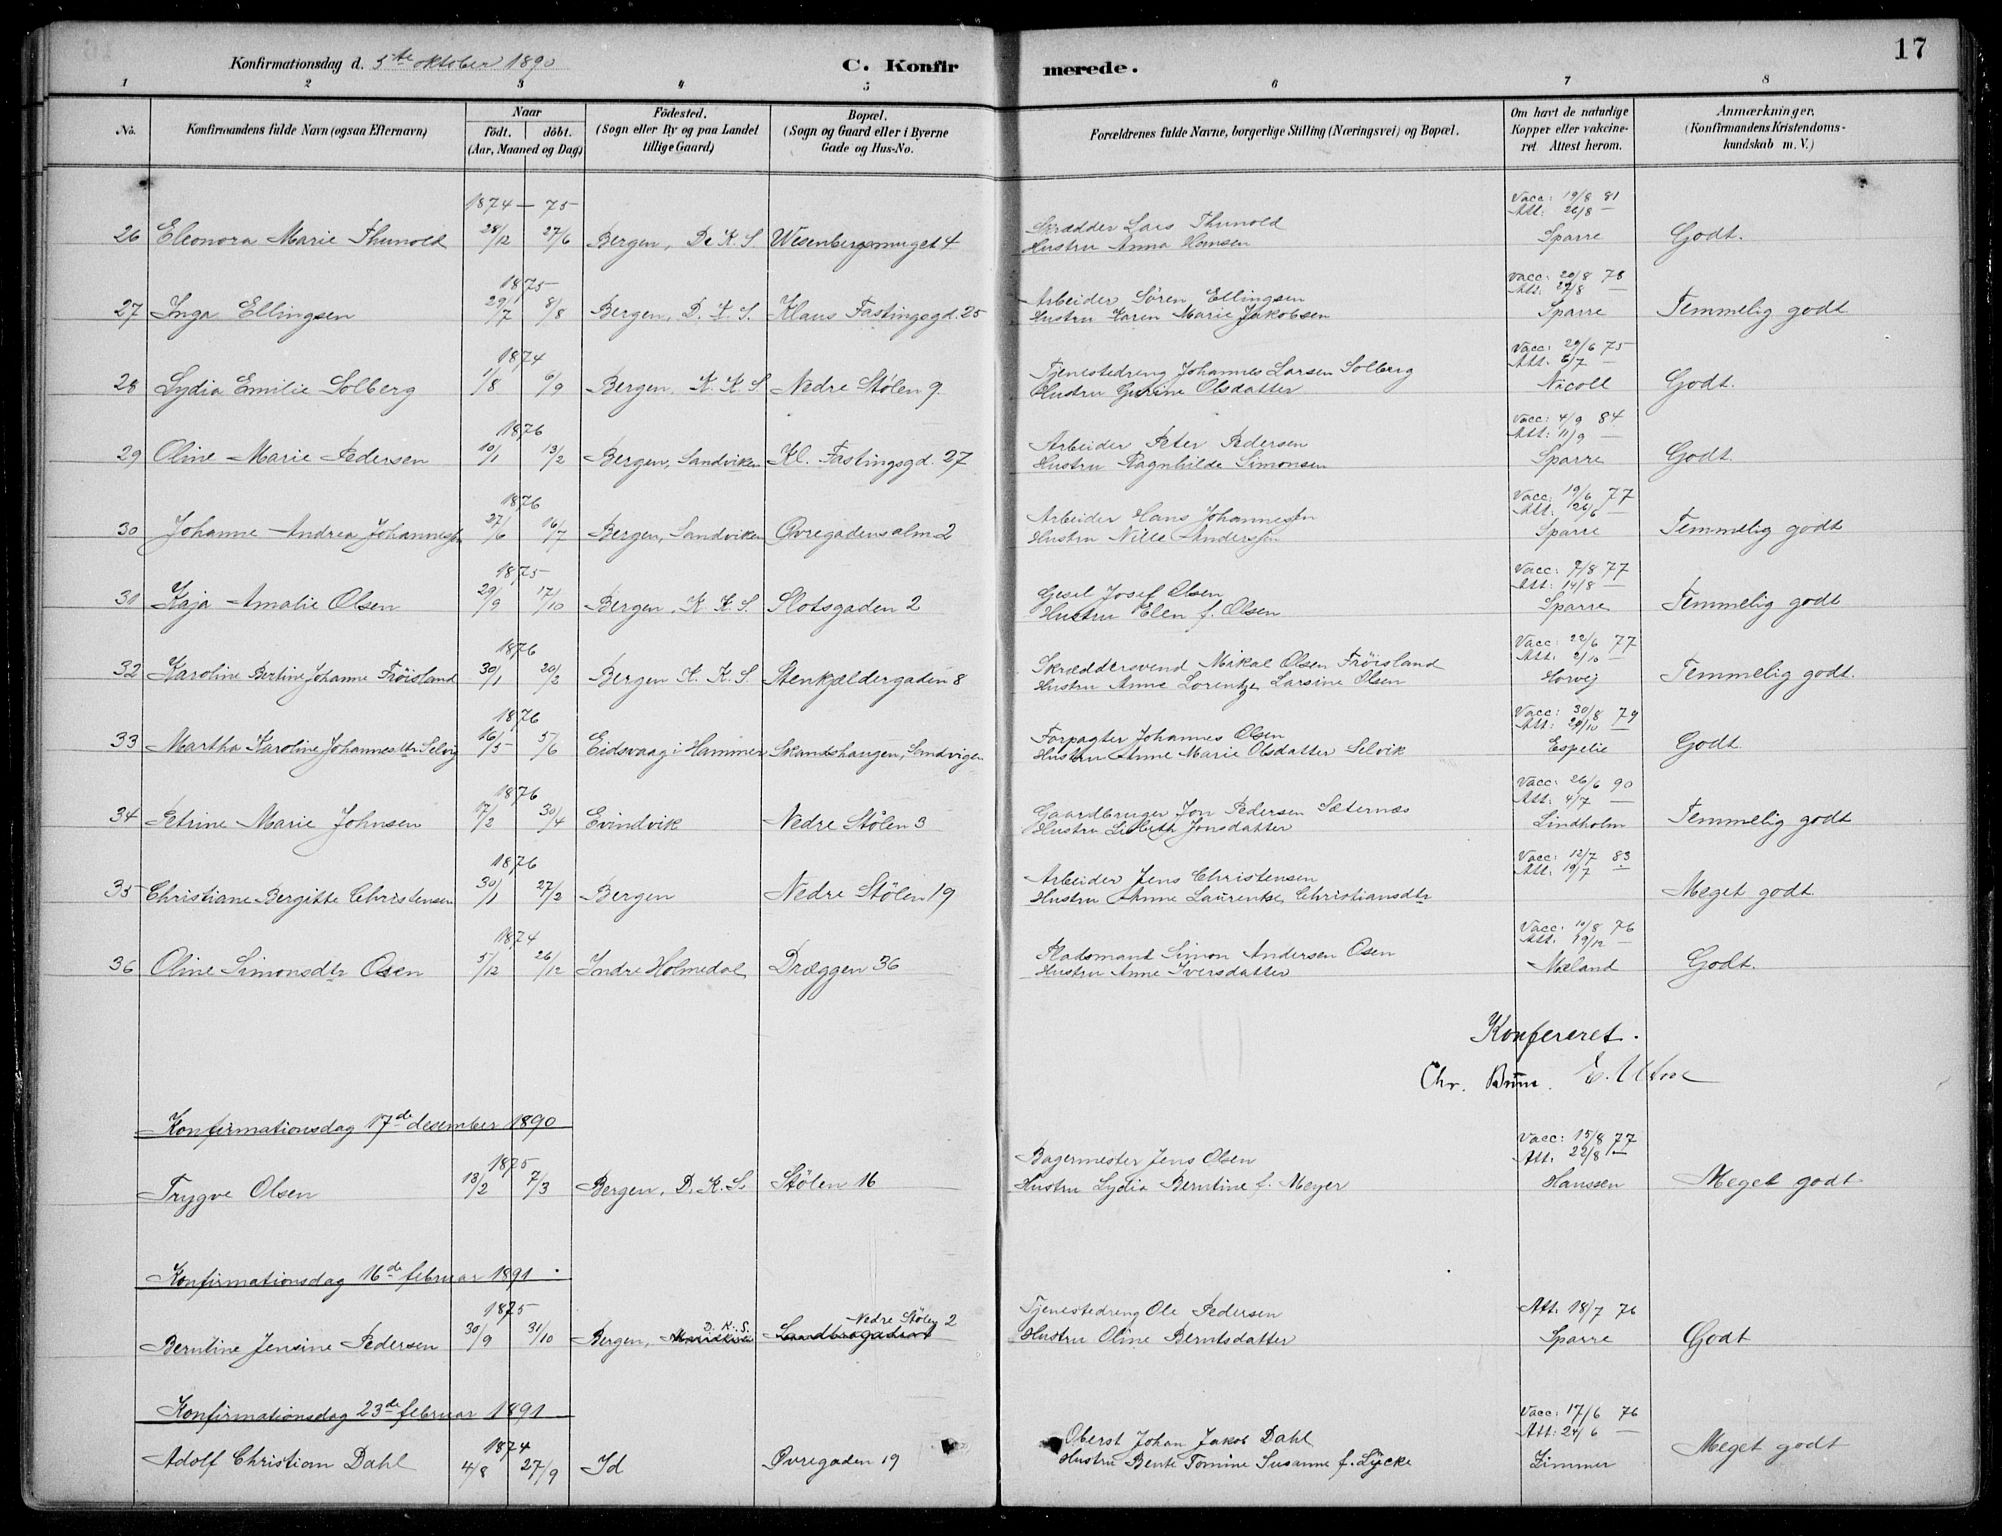 17
Konfirmationsdag d. 5te oktober 1890
C. Konfirmerede.
1 2 3 4 5 6 7 8
No.
Konfirmandens fulde Navn (ogsaa Efternavn)
Naar
födt. döbt.
(Aar, Maaned og Dag)
Födested.
(Sogn eller By og paa Landet
tillige Gaard)
Bopæl.
(Sogn og Gaard eller i Byerne
Gade og Hus-No.
Forældrenes fulde Navne, borgerlige Stilling (Næringsvei) og Bopæl.
Om havt de naturlige
Kopper eller vakcine-
ret. Attest herom.
Anmærkninger.
(Konfirmandens Kristendoms-
kundskab m. V.)
1874 — 75 Vacc: 19/8 81
Skrædder Lars Thunold Att: 26/8 —
26 Eleonora Marie Thunold 28/12 27/6 Bergen, D. K. S Wesenbergsmuget 4 Hustru Anna Hansen Sparre Godt.
1875 Vacc: 20/8 78
Arbeider Søren Ellingsen Att: 27/8 —
27 Inga Ellingsen 29/7 8/8 Bergen, D. K. S. Klaus Fastingsgd. 25 Hustru Karen Marie Jakobsen Sparre Temmelig godt
1874 Vacc: 29/6 75
Tjenestedreng Johannes Larsen Solberg Att: 6/7 —
28 Lydia Emilie Solberg 1/8 6/9 Bergen, K. K. S. Nedre Stølen 9. Hustru Gurine Olsdatter Nicoll Godt.
1876 Vacc: 4/9 84
Arbeider Peter Pedersen Att: 11/9 —
29 Oline Marie Pedersen 10/1 13/2 Bergen, Sandviken Kl. Fastingsgd. 27 Hustru Ragnhilde Simonsen Sparre Godt.
1876 Vacc: 19/6 77
Arbeider Hans Johannesen Att: 26/6 —
30 Johanne Andrea Johannesen 27/6 16/7 Bergen, Sandviken Øvregadens alm 2 Hustru Nille Andersen Sparre Temmelig godt
1875 Vacc: 7/8 77
Gesel Josef Olsen Att: 14/8 —
31 Kaja Amalie Olsen 29/9 17/10 Bergen, K. K. S. Slotsgaden 2 Hustru Elen f. Olsen Sparre Temmelig godt
1876 Vacc: 22/6 77
Skræddersvend Mikal Olsen Fröisland Att: 2/10 —
32 Karoline Bertine Johanne Fröisland 30/1 20/2 Bergen K. K. S. Stenkjældergaden 8 Hustru Anne Lorentze Larsine Olsen Horvej Temmelig godt.
1876 Vacc: 30/8 79
Forpagter Johannes Olsen Att: 20/10 —
33 Martha Karoline Johannesdtr Selvig 16/5 5/6 Eidsvaag i Hammer Skandshaugen, Sandvigen Hustru Anne Marie Olsdatter Selvik Espelie Godt
1876 Vacc: 26/6 90
Gaardbruger Jon Pedersen Sæternæs Att: 4/7 —
34 Petrine Marie Johnsen 17/2 30/4 Evindvik Nedre Stølen 3 Hustru Lisbeth Jonsdatter Lindholm Temmelig godt
1876 Vacc: 12/7 83
Arbeider Jens Christensen Att: 19/7 —
35 Christiane Bergitte Christensen 30/1 27/2 Bergen Nedre Stølen 19 Hustru Anne Laurentze Christiansdtr Meget godt
1874 Vacc: 10/8 76
Pladsmand Simon Andersen Osen Att: 19/12 —
36 Oline Simonsdtr Osen 5/12 26/12 Indre Holmedal Dræggen 36 Hustru Anne Iversdatter Mæland Godt.
Konfereret.
Chr. Brun.
Konfirmationsdag 17de desember 1890
1875 Vacc: 15/8 77
Bagermester Jens Olsen Att: 22/8 —
Trygve Olsen 13/2 7/3 Bergen, D. K. S. Stølen 16 Hustru Lydia Berntine f. Meyer Hanssen Meget godt
Konfirmationsdag 16de februar 1891
1875 D. K. S. Nedre Stølen 2 Tjenestedreng Ole Pedersen Att. 18/7 76
Berntine Jensine Pedersen 30/9 31/10 Bergen, Hustru Oline Berntsdatter Sparre Godt
Konfirmationsdag 23de februar 1891
1874 Vacc: 17/6 76
Oberst Johan Jakob Dahl Att: 24/6 —
Adolf Christian Dahl 4/8 27/9 Id Øvregaden 19 Hustru Bente Tomine Susanne f. Lÿcke Zimmer Meget godt